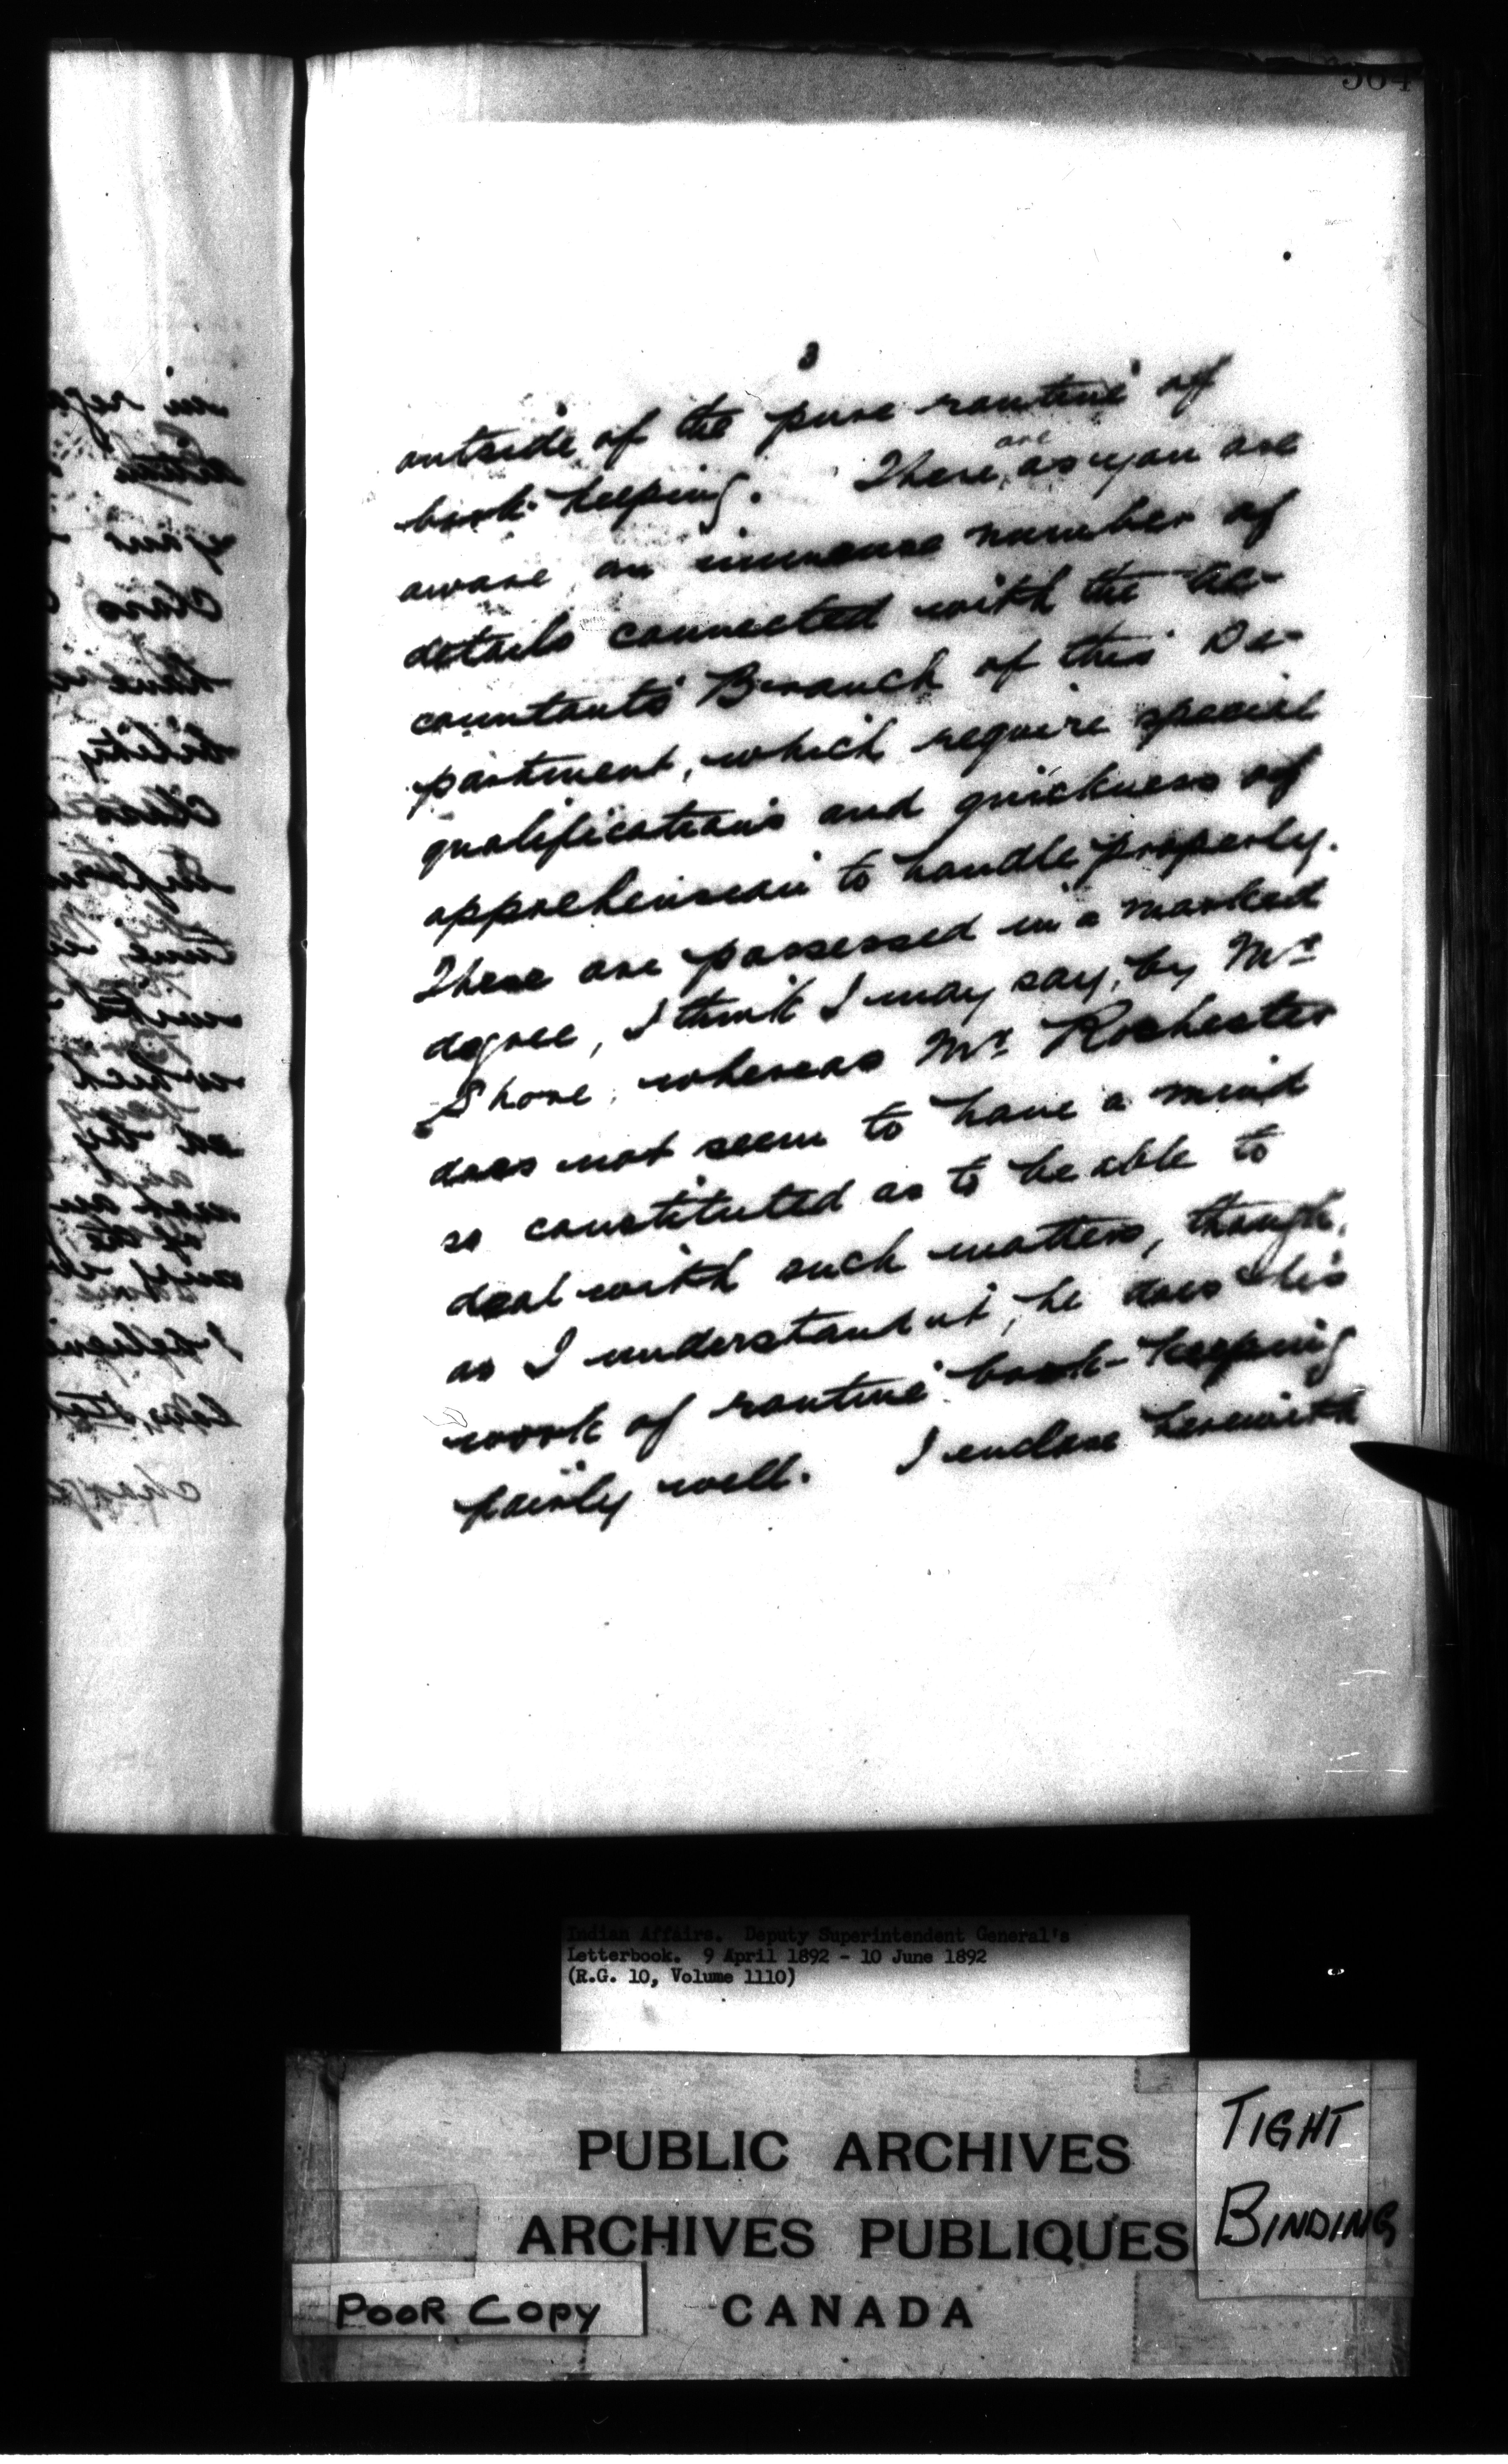 3
outside of the pure routine of
book keeping. There are as you are
aware an immense number of
details connected with the Ac-
countants Branch of this De-
partment, which require special
qualifications and quickness of
apprehension to handle properly.
These are possessed in a marked
degree, I think I may say, by Mr
Shore, whereas Mr Rochester
does not seem to have a mind
so constituted as to be able to
deal with such matters, though,
as I understand it, he does his
work of routine book-keeping
fairly well. I enclose herewith
Indian Affairs. Deputy Superintendent General's
Letterbook. 9 April 1892 - 10 June 1892
(R.G. 10, Volume 1110)
PUBLIC ARCHIVES
ARCHIVES PUBLIQUES
CANADA
TIGHT
BINDING
POOR COPY